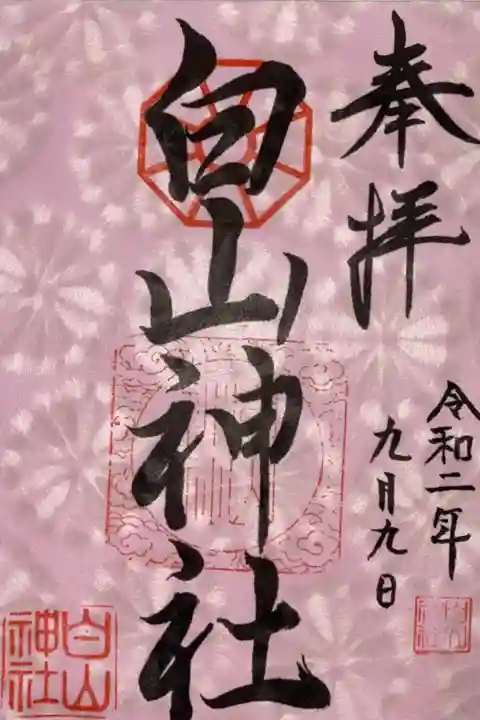 奉拝
白山神社
令和二年
九月九日
白山
神社